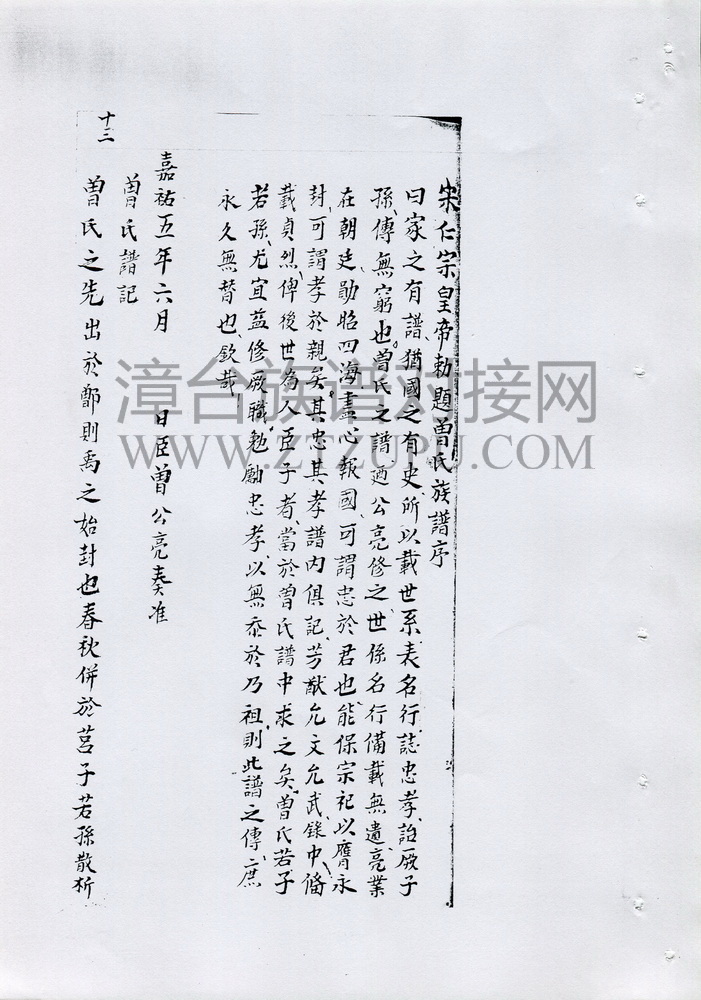 宋仁宗皇帝勅題曾氏族譜序
曰家之有譜猶國之有史所以載世系表名行誌忠孝詒厥子
孫傳無窮也曾氏之譜迺公亮修之世係名行備載無遺亮業
在朝廷勛昭四海盡心報國可謂忠於君也能保宗祀以膺永
封可謂孝於親矣其忠其孝譜內俱記芳猷允文允武錄中俻
載貞烈俾後世為人臣子者當於曾氏譜中求之矣曾氏若子
若孫尤宜益修厥職勉勵忠孝以無忝於乃祖則此譜之傳庶
永久無替也欽哉
嘉祐五年六月 日臣曾公亮奏准
曾氏譜記
曾氏之先出於鄫則禹之始封也春秋併於莒子若孫散析
十三
漳台族谱对接网
WWW.ZTZUPU.COM